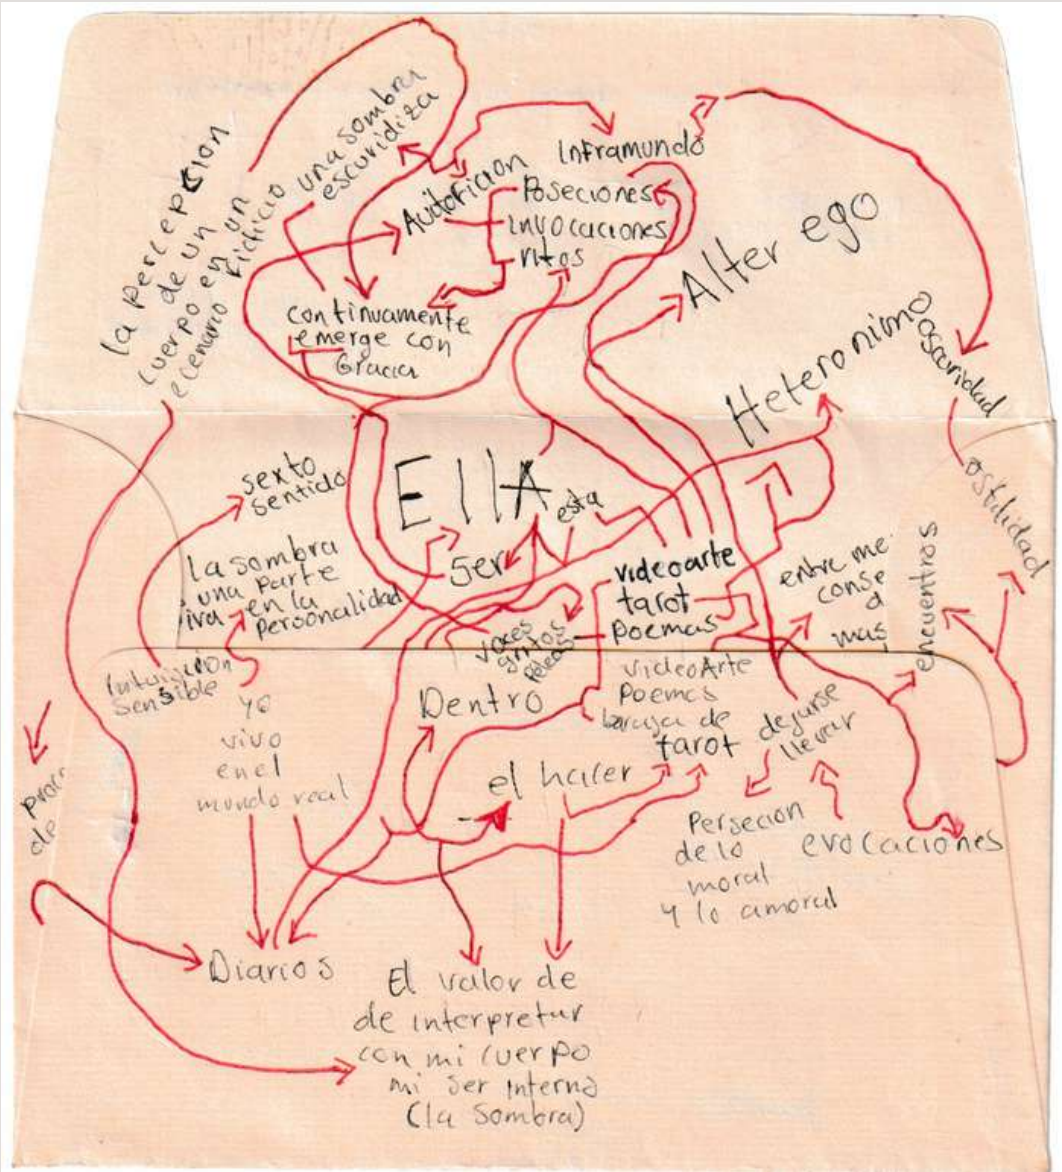 la percepcion
cuerpo de un
ecenario en un
ridicio
una sombra
escuridiza
Autoficion
Inframundo
Poseciones
invocaciones
ritos
continuamente
emerge con
Gracia
Alter ego
Heteronimo
oscuridad
ostilidad
sexto
sentido
EllA
esta
Ser
la sombra
una parte
iva en la
personalidad
videoarte
tarot
poemas
voces
gritos
peleas
entre me
conse
a
mas
encuentros
intuision
sensible
yo
vivo
en el
mundo real
Dentro
videoArte
Poemas
baraja de
tarot
dejarse
llevar
el hacer
Persecion
de lo
moral
y lo amoral
evocaciones
proc
de
Diarios
El valor de
de interpretar
con mi cuerpo
mi ser interno
(la Sombra)